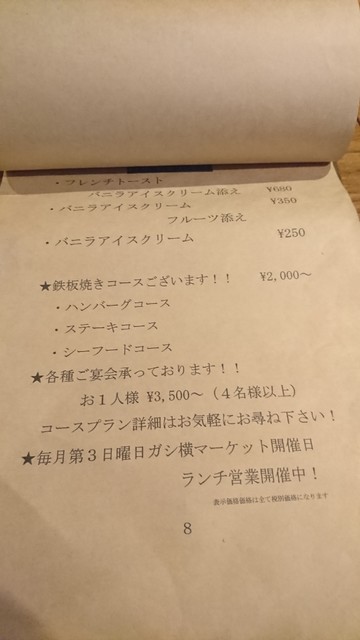 ・フレンチトースト
バニラアイスクリーム添え ¥680
・バニラアイスクリーム ¥350
フルーツ添え
・バニラアイスクリーム ¥250
★鉄板焼きコースございます！！ ¥2,000～
・ハンバーグコース
・ステーキコース
・シーフードコース
★各種ご宴会承っております！！
お１人様 ¥3,500～（４名様以上）
コースプラン詳細はお気軽にお尋ね下さい！
★毎月第３日曜日ガシ横マーケット開催日
ランチ営業開催中！
表示価格価格は全て税別価格になります
8